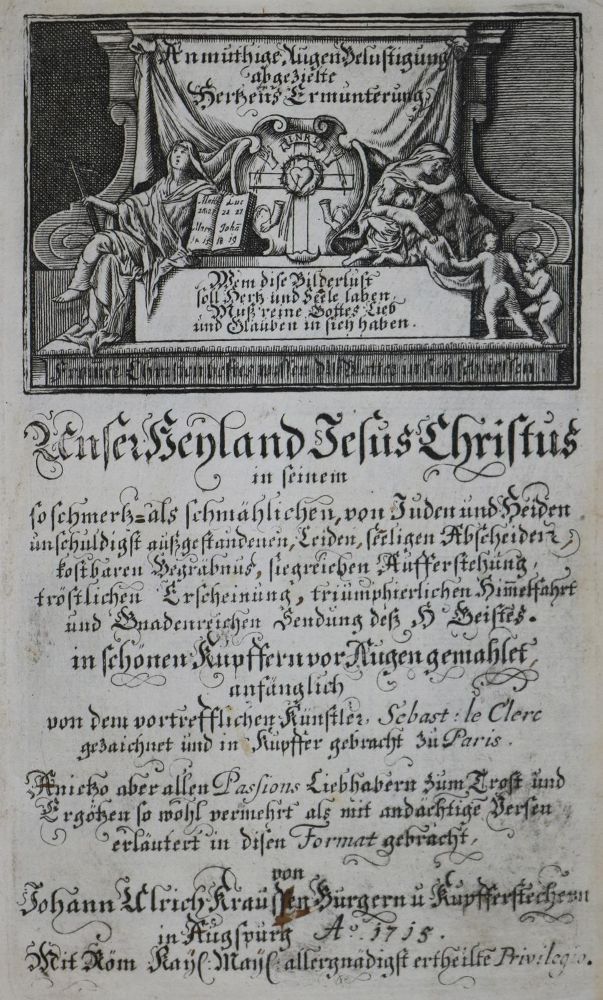 Anmuthige Augen Belustigung
abgezielte
Hertzens Ermunterung,
INRI
Matth Luc
Marc Johā
18 19
Wem dise Bilderlust
soll Hertz und Seele laben,
Muß reine Gottes Lieb
und Glauben in sich haben.
Fromer Christen bestes wissen diß Blätter in sich schliessen.
Unser Heyland Jesus Christus
in seinem
so schmertz= als schmählichen, von Juden und Heiden
unschuldigst außgestandenen, Leiden, seeligen Abscheiden,
kostbaren Begräbnus, siegreichen Aufferstehung,
tröstlichen Erscheinung, triumphierlichen Him̄elfahrt
und Gnadenreichen Sendung deß H Geistes.
in schönen Kupffern vor Augen gemahlet,
anfänglich
von dem vortrefflichen Künstler, Sebast: le Clerc
gezaichnet und in Kupffer gebracht zu Paris.
Anietzo aber allen Passions Liebhabern zum Trost und
Ergötzen so wohl vermehrt als mit andächtige Versen
erläutert in disen Format gebracht,
von
Johann Ulrich Kraussen Burgern u Kupfferstechern
in Augspurg Aō. 1715.
Mit Röm Kayſ: Mayſ: allergnädigst ertheilte Privilegio.